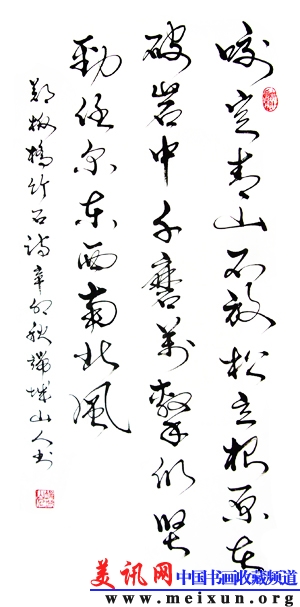 咬定青山不放松立根原在
破岩中千磨万击仍坚
劲任尔东西南北风
郑板桥竹石诗辛卯秋瑞城山人书
美讯网 中国书画收藏频道
www.meixun.org